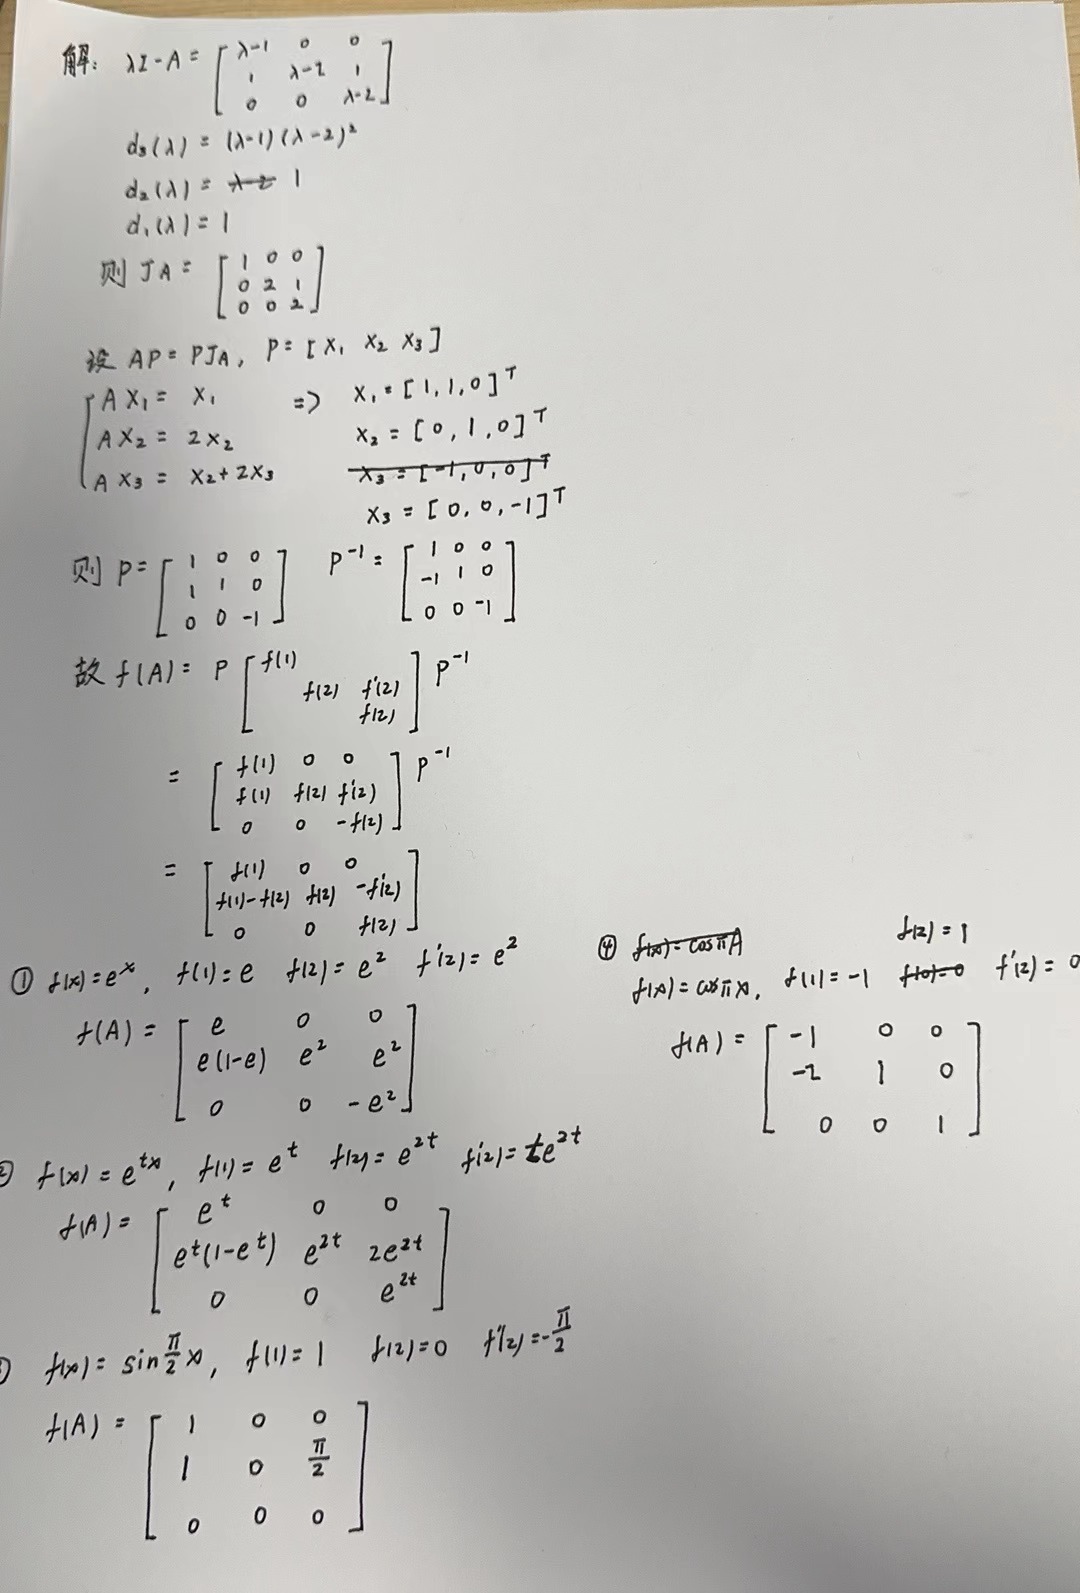 解: λI-A = [λ-1 0 0
1 λ-2 1
0 0 λ-2]
d₃(λ) = (λ-1)(λ-2)²
d₂(λ) = 1
d₁(λ) = 1
则 JA = [1 0 0
0 2 1
0 0 2]
设 AP = PJA, P = [x₁ x₂ x₃]
{Ax₁ = x₁ => x₁ = [1,1,0]ᵀ
Ax₂ = 2x₂ x₂ = [0,1,0]ᵀ
Ax₃ = x₂+2x₃ x₃ = [-1,0,0]ᵀ
x₃ = [0,0,-1]ᵀ
则 P = [1 0 0
1 1 0
0 0 -1] P⁻¹ = [1 0 0
-1 1 0
0 0 -1]
故 f(A) = P [f(1)
f(2) f'(2)
f(2)] P⁻¹
= [f(1) 0 0
f(1) f(2) f'(2)
0 0 -f(2)] P⁻¹
= [f(1) 0 0
f(1)-f(2) f(2) -f'(2)
0 0 f(2)]
① f(x) = eˣ, f(1) = e f(2) = e² f'(2) = e²
f(A) = [e 0 0
e(1-e) e² e²
0 0 -e²]
② f(x) = eᵗˣ, f(1) = eᵗ f(2) = e²ᵗ f'(2) = te²ᵗ
f(A) = [eᵗ 0 0
eᵗ(1-eᵗ) e²ᵗ 2e²ᵗ
0 0 e²ᵗ]
f(x) = sin π/2 x, f(1) = 1 f(2) = 0 f'(2) = -π/2
f(A) = [1 0 0
1 0 π/2
0 0 0]
④ f(x) = cosπA f(2) = 1
f(x) = cosπx, f(1) = -1 f(0)=0 f'(2) = 0
f(A) = [-1 0 0
-2 1 0
0 0 1]